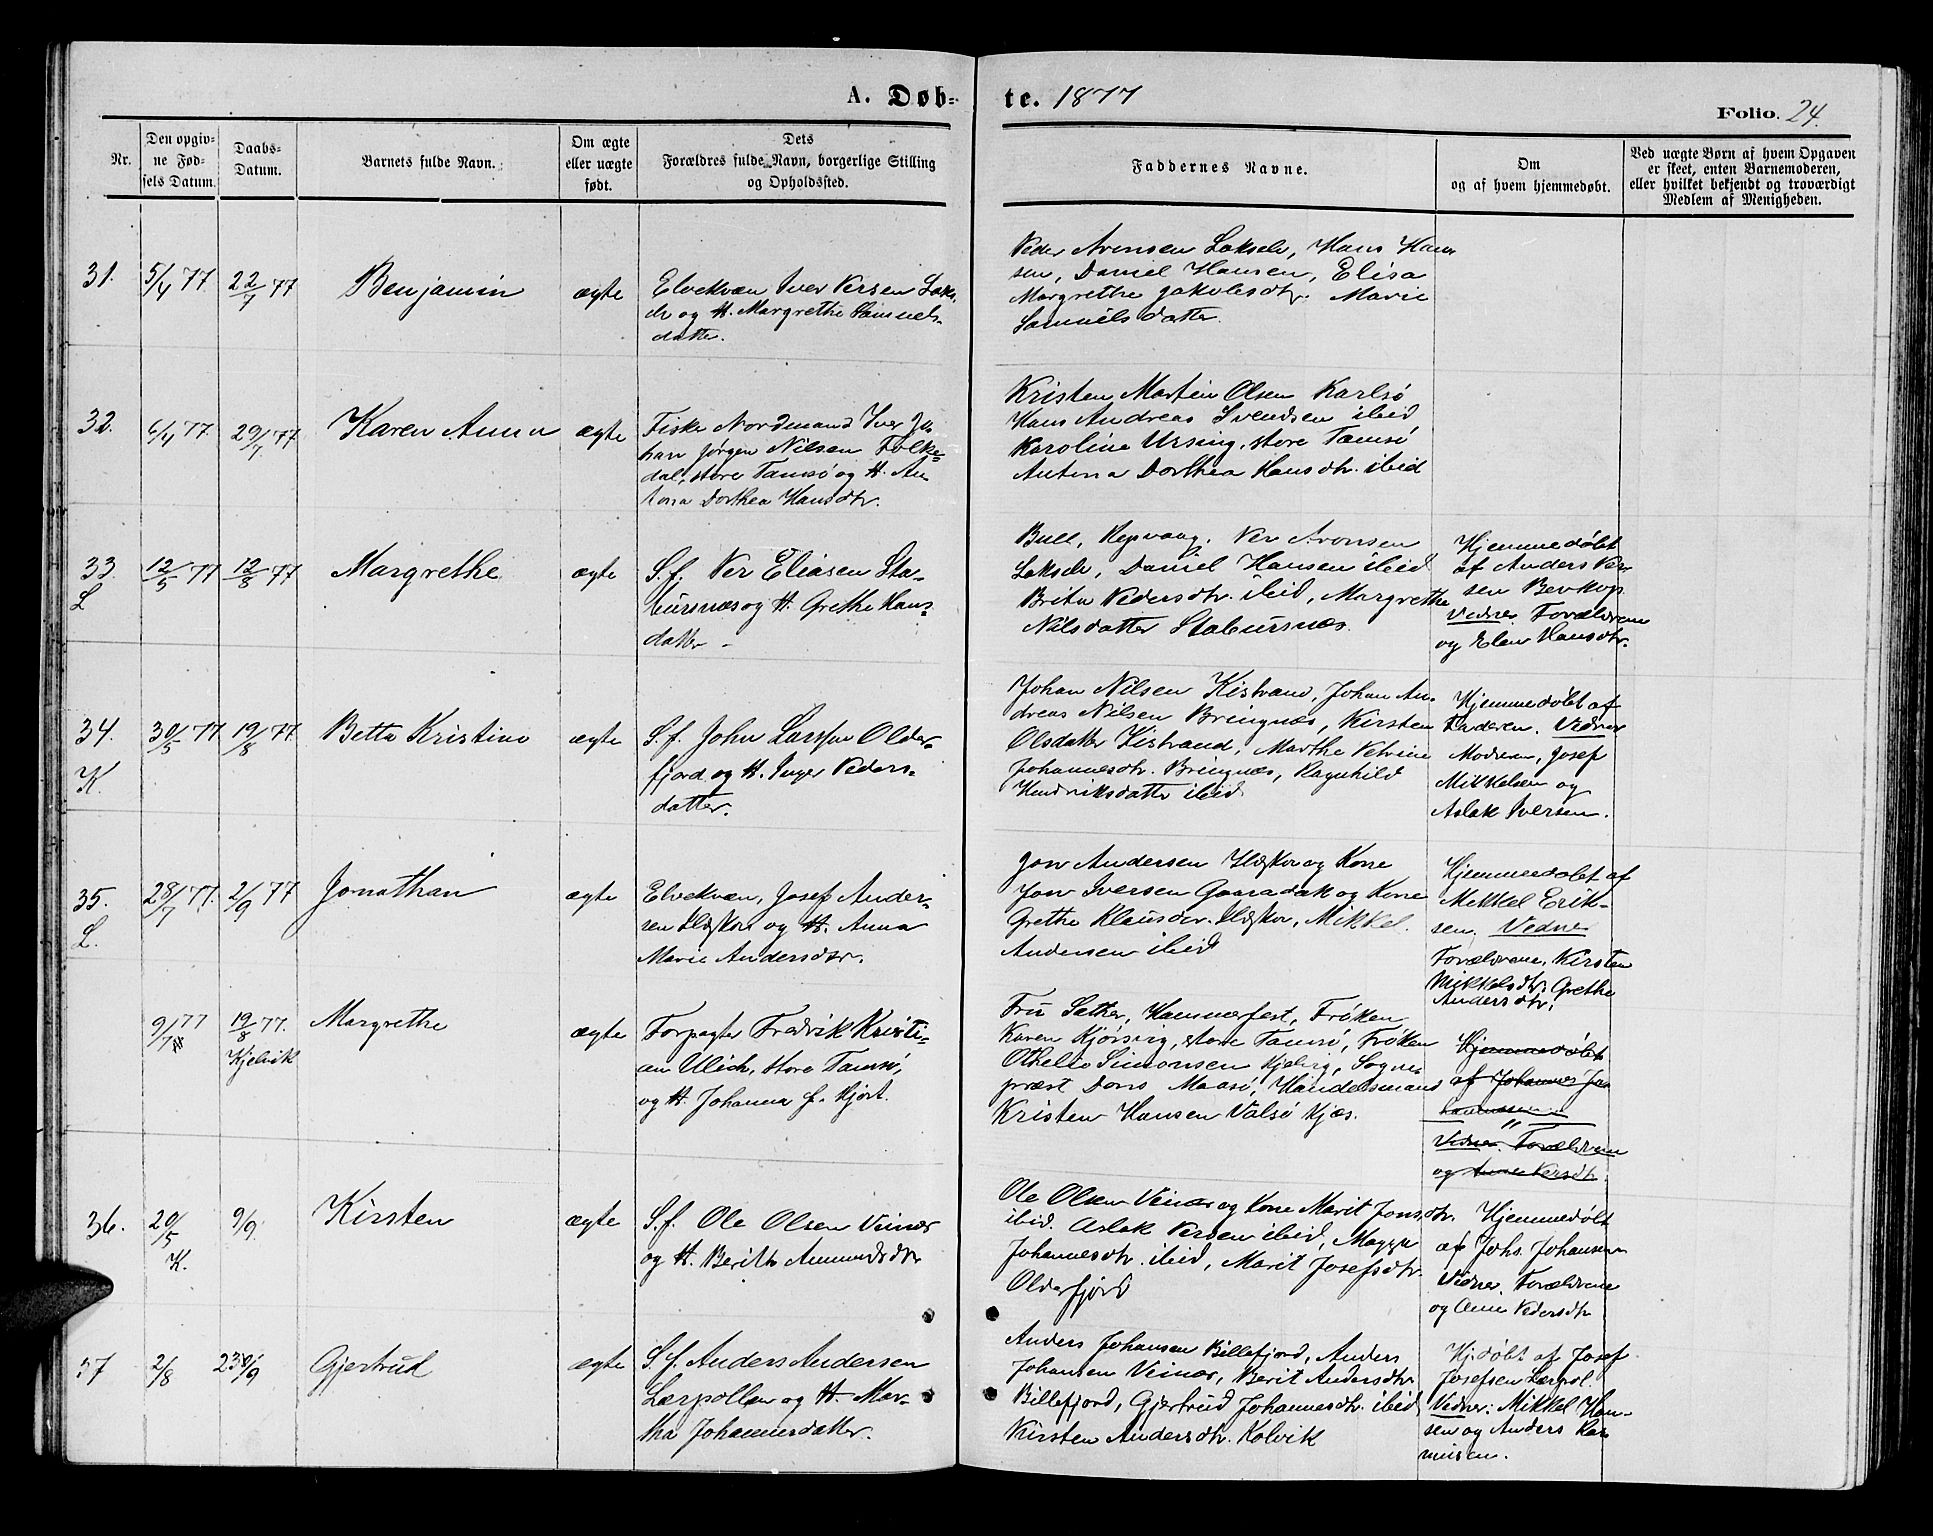 A. Døb-
te. 1877
Folio. 24.
Nr.
Den opgiv-
ne Fød-
sels Datum.
Daabs-
Datum.
Barnets fulde Navn.
Om ægte
eller uægte
født.
Dets
Forældres fulde Navn, borgerlige Stilling
og Opholdssted.
Faddernes Navne.
Om
og af hvem hjemmedøbt.
Ved uægte Børn af hvem Opgaven
er skeet, enten Barnemoderen,
eller hvilket bekjendt og troværdigt
Medlem af Menigheden.
31.
5/4 77
22/7 77
Benjamin
ægte
Elvekvæn Iver Persen Laks-
elv og H. Margrethe Samuels-
datter.
Peder Aronsen Lakselv, Hans Han-
sen, Daniel Hansen, Elisa
Margrethe Jakobsdtr. Marie
Samuelsdatter.
32.
6/4 77.
29/7 77
Karen Anna
ægte
Fisker Nordmand Iver Jo-
han Jørgen Nilsen Folke-
dal, store Tamsø og H. An-
tona Dorthea Hansdtr.
Kristen Martin Olsen Karlsø
Hans Andreas Svendsen ibid
Karoline Ursing, store Tamsø
Antona Dorthea Hansdtr. ibid
33.
L
12/5 77
12/8 77
Margrethe
ægte
S.f. Per Eliasen Sta-
bursnæs og H. Grethe Hans-
datter -
Bull, Repvaag, Per Aronsen
Lakselv, Daniel Hansen ibid
Brita Pedersdtr. ibid, Margrethe
Nilsdatter Stabursnæs.
Hjemmedøbt
af Anders Per-
sen Bevkop
Vidner Forældrene
og Elen Hansdtr.
34.
K.
30/5 77
19/8 77.
Betta Kristine
ægte
S.f. John Larssen Older-
fjord og H. Inger Peders-
datter.
Johan Nilsen Kistrand, Johan An-
dreas Nilsen Bringnæs, Kirsten
Olsdatter Kistrand, Marthe Petrine
Johannesdtr. Bringnæs, Ragnhild
Hendriksdatter ibid
Hjemmedøbt af
Faderen. Vidner
Modren, Josef
Mikkelsen og
Aslak Iversen.
35.
L.
28/7 77.
2/9 77
Jonathan
ægte
Elvekvæn, Josef Ander-
sen Ildskor og H. Anna
Marie Andersdtr.
Jon Andersen Ildskor og Kone
Jon Iversen Gaaradak og Kone
Grethe Klausdtr. Ildskor, Mikkel
Andersen ibid
Hjemmedøbt af
Mikkel Erik-
sen. Vidne
Forældrene, Kirsten
Mikkelsdtr. Grethe
Andersdtr.
9/7 77
19/8 77.
Kjelvik
Margrethe
ægte
Forpagter Fredrik Kristi-
an Ulich, store Tamsø,
og H. Johanna f. Hjort.
Fru Sæther, Hammerfest, Frøken
Karen Kjørsing, store Tamsø, Frøken
Othelie Simonsen Kjelvig, Sogne-
præst Dons Maasø, Handelsmand
Kristen Hansen Valsø Kjæs.
Hjemmedøbt
af Johannes Jo-
hannesen
"
Vidner. Forældrene
og Anne Persdtr.
36.
20/5
K.
9/9.
Kirsten
ægte
S.f. Ole Olsen Veinæs
og H. Berith Amundsdtr
Ole Olsen Veinæs og Kone Marit Jonsdtr.
ibid. Aslak Persen ibid, Magga
Johannesdtr. ibid, Marit Josefsdtr.
Olderfjord
Hjemmedøbt
af Johs. Johansen
Vidner. Forældrene
og Anne Pedersdtr
37
2/8
23/9
Gjertrud
ægte
S.f. Anders Andersen
Lærpollen og H. Mar-
tha Johannesdatter.
Anders Johansen Billefjord, Anders
Johansen Veinæs, Berit Andersdtr
Billefjord, Gjertrud Johannesdtr. ibid
Kirsten Andersdtr. Kolvik
Hj.døbt af Josef
Josefsen Lærpol.
Vidner: Mikkel Han-
sen og Anders Ras-
musen.